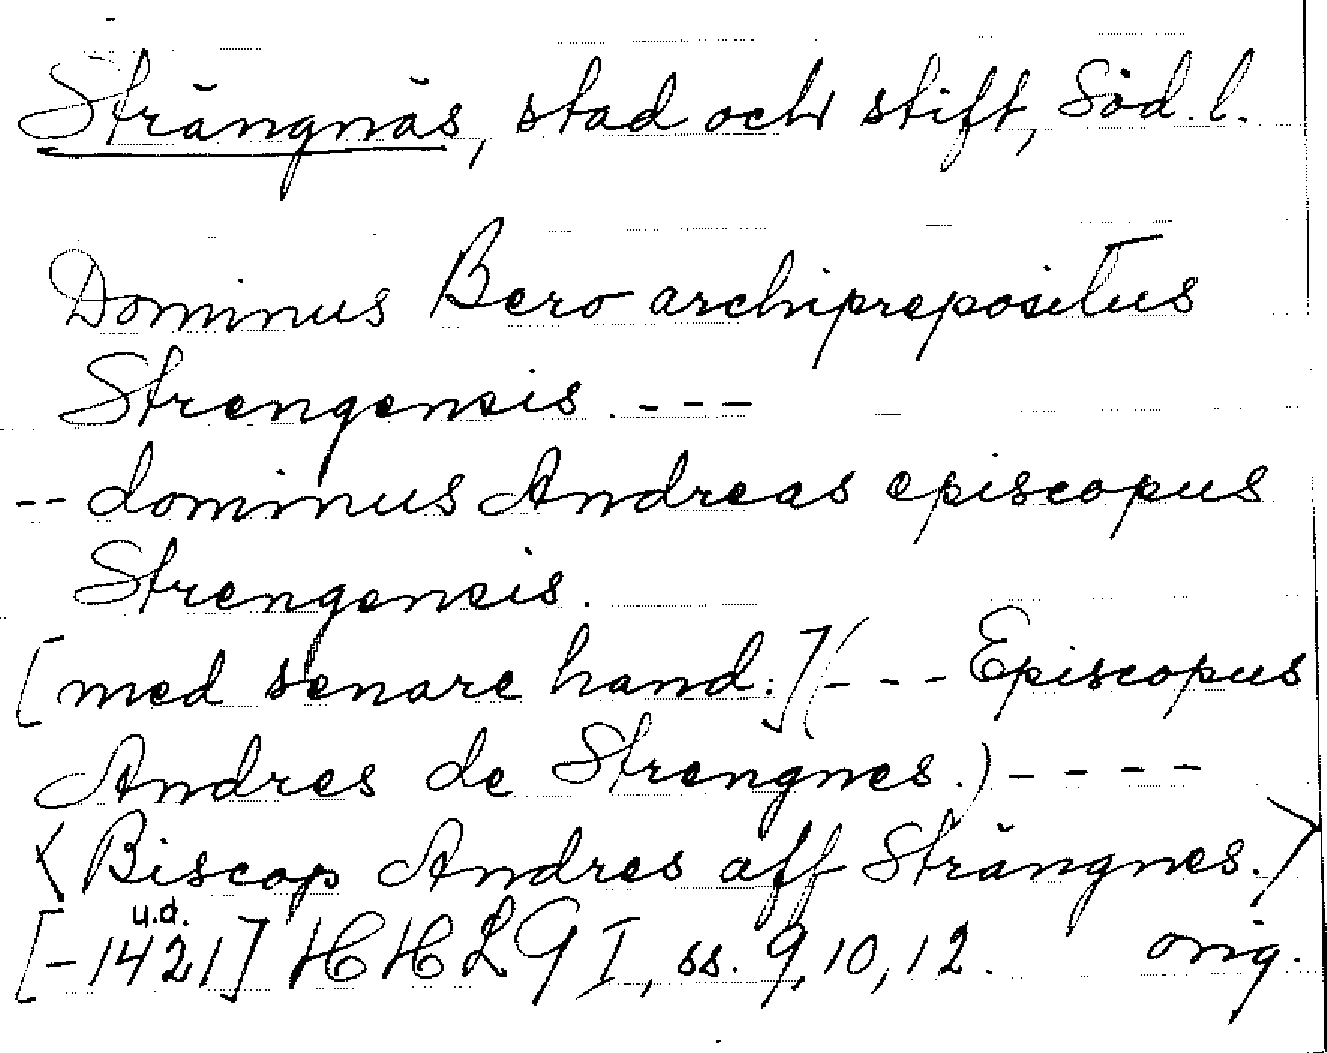 Strängnäs, stad och stift, Söd. l.
Dominus Bero archiprepositus
Strengensis. ---
-- dominus Andreas episcopus
Strengensis.
[med senare hand:] (--- Episcopus
Andres de Strengnes.) ----
<Biscop Andres aff Strängnes.>
u.d.
[-1421] HHLG I, ss. 9, 10, 12. orig.